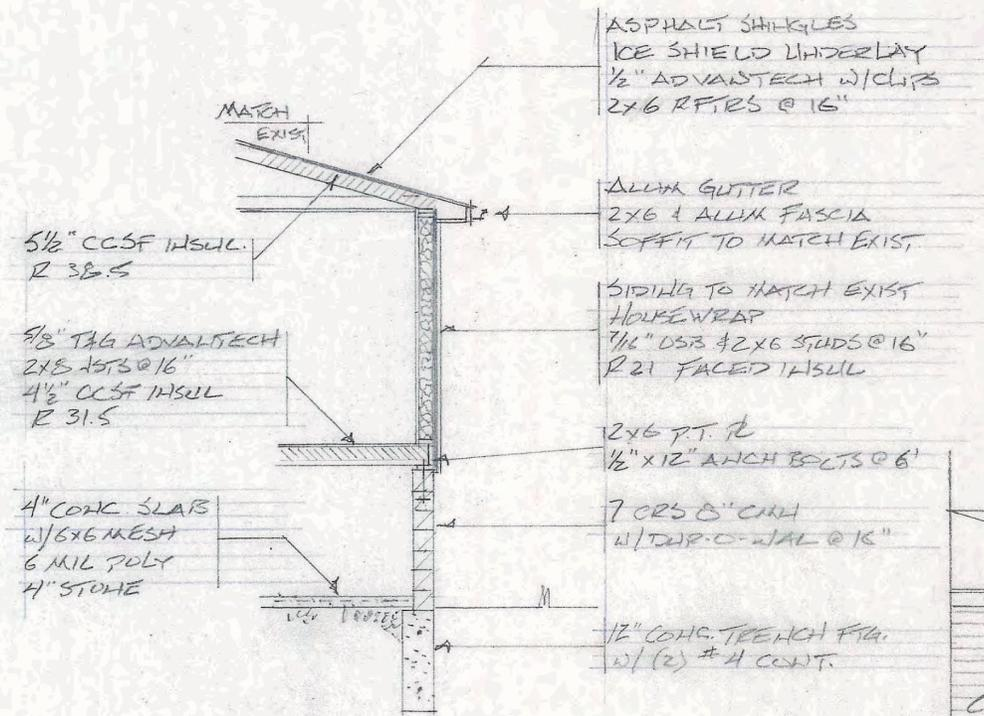 ASPHALT SHINGLES
ICE SHIELD UNDERLAY
1/2" ADVANTECH W/CLIPS
2x6 RFTRS @ 16"
MATCH
EXIST
ALUM GUTTER
2x6 & ALUM FASCIA
SOFFIT TO MATCH EXIST
5 1/2" CCSF INSUL.
R 38.5
SIDING TO MATCH EXIST
HOUSEWRAP
7/16" OSB & 2x6 STUDS @ 16"
R 21 FACED INSUL
5/8" T&G ADVANTECH
2x8 JSTS @ 16"
4 1/2" CCSF INSUL
R 31.5
2x6 P.T. PL
1/2" x 12" ANCH BOLTS @ 6'
4" CONC. SLAB
W/ 6x6 MESH
6 MIL POLY
4" STONE
7 CRS 8" CMU
W/ DUR-O-WAL @ 16"
12" CONC. TRENCH FTG.
W/ (2) #4 CONT.